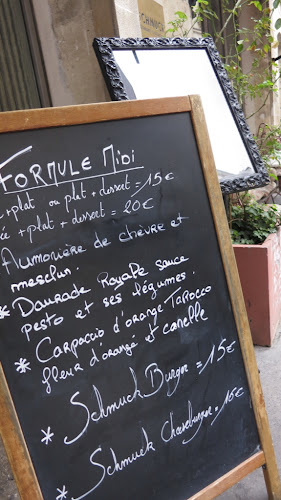 Formule Midi
+ plat ou plat + dessert = 15€
ée + plat + dessert = 20€
Aumonière de chèvre et
mesclun.
* Daurade Royale sauce
pesto et ses légumes.
* Carpaccio d'orange Tarocco
fleur d'orangé et canelle
* Schmuck Burger = 15€
* Schmuck Cheeseburger = 16€